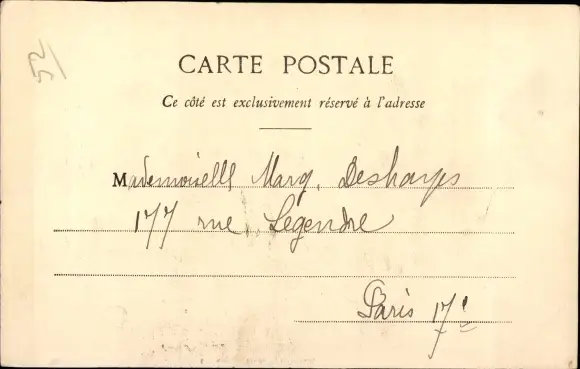 52
CARTE POSTALE
Ce côté est exclusivement réservé à l'adresse
Mademoiselle Marg. Desharps
177 rue Legendre
Paris 17e